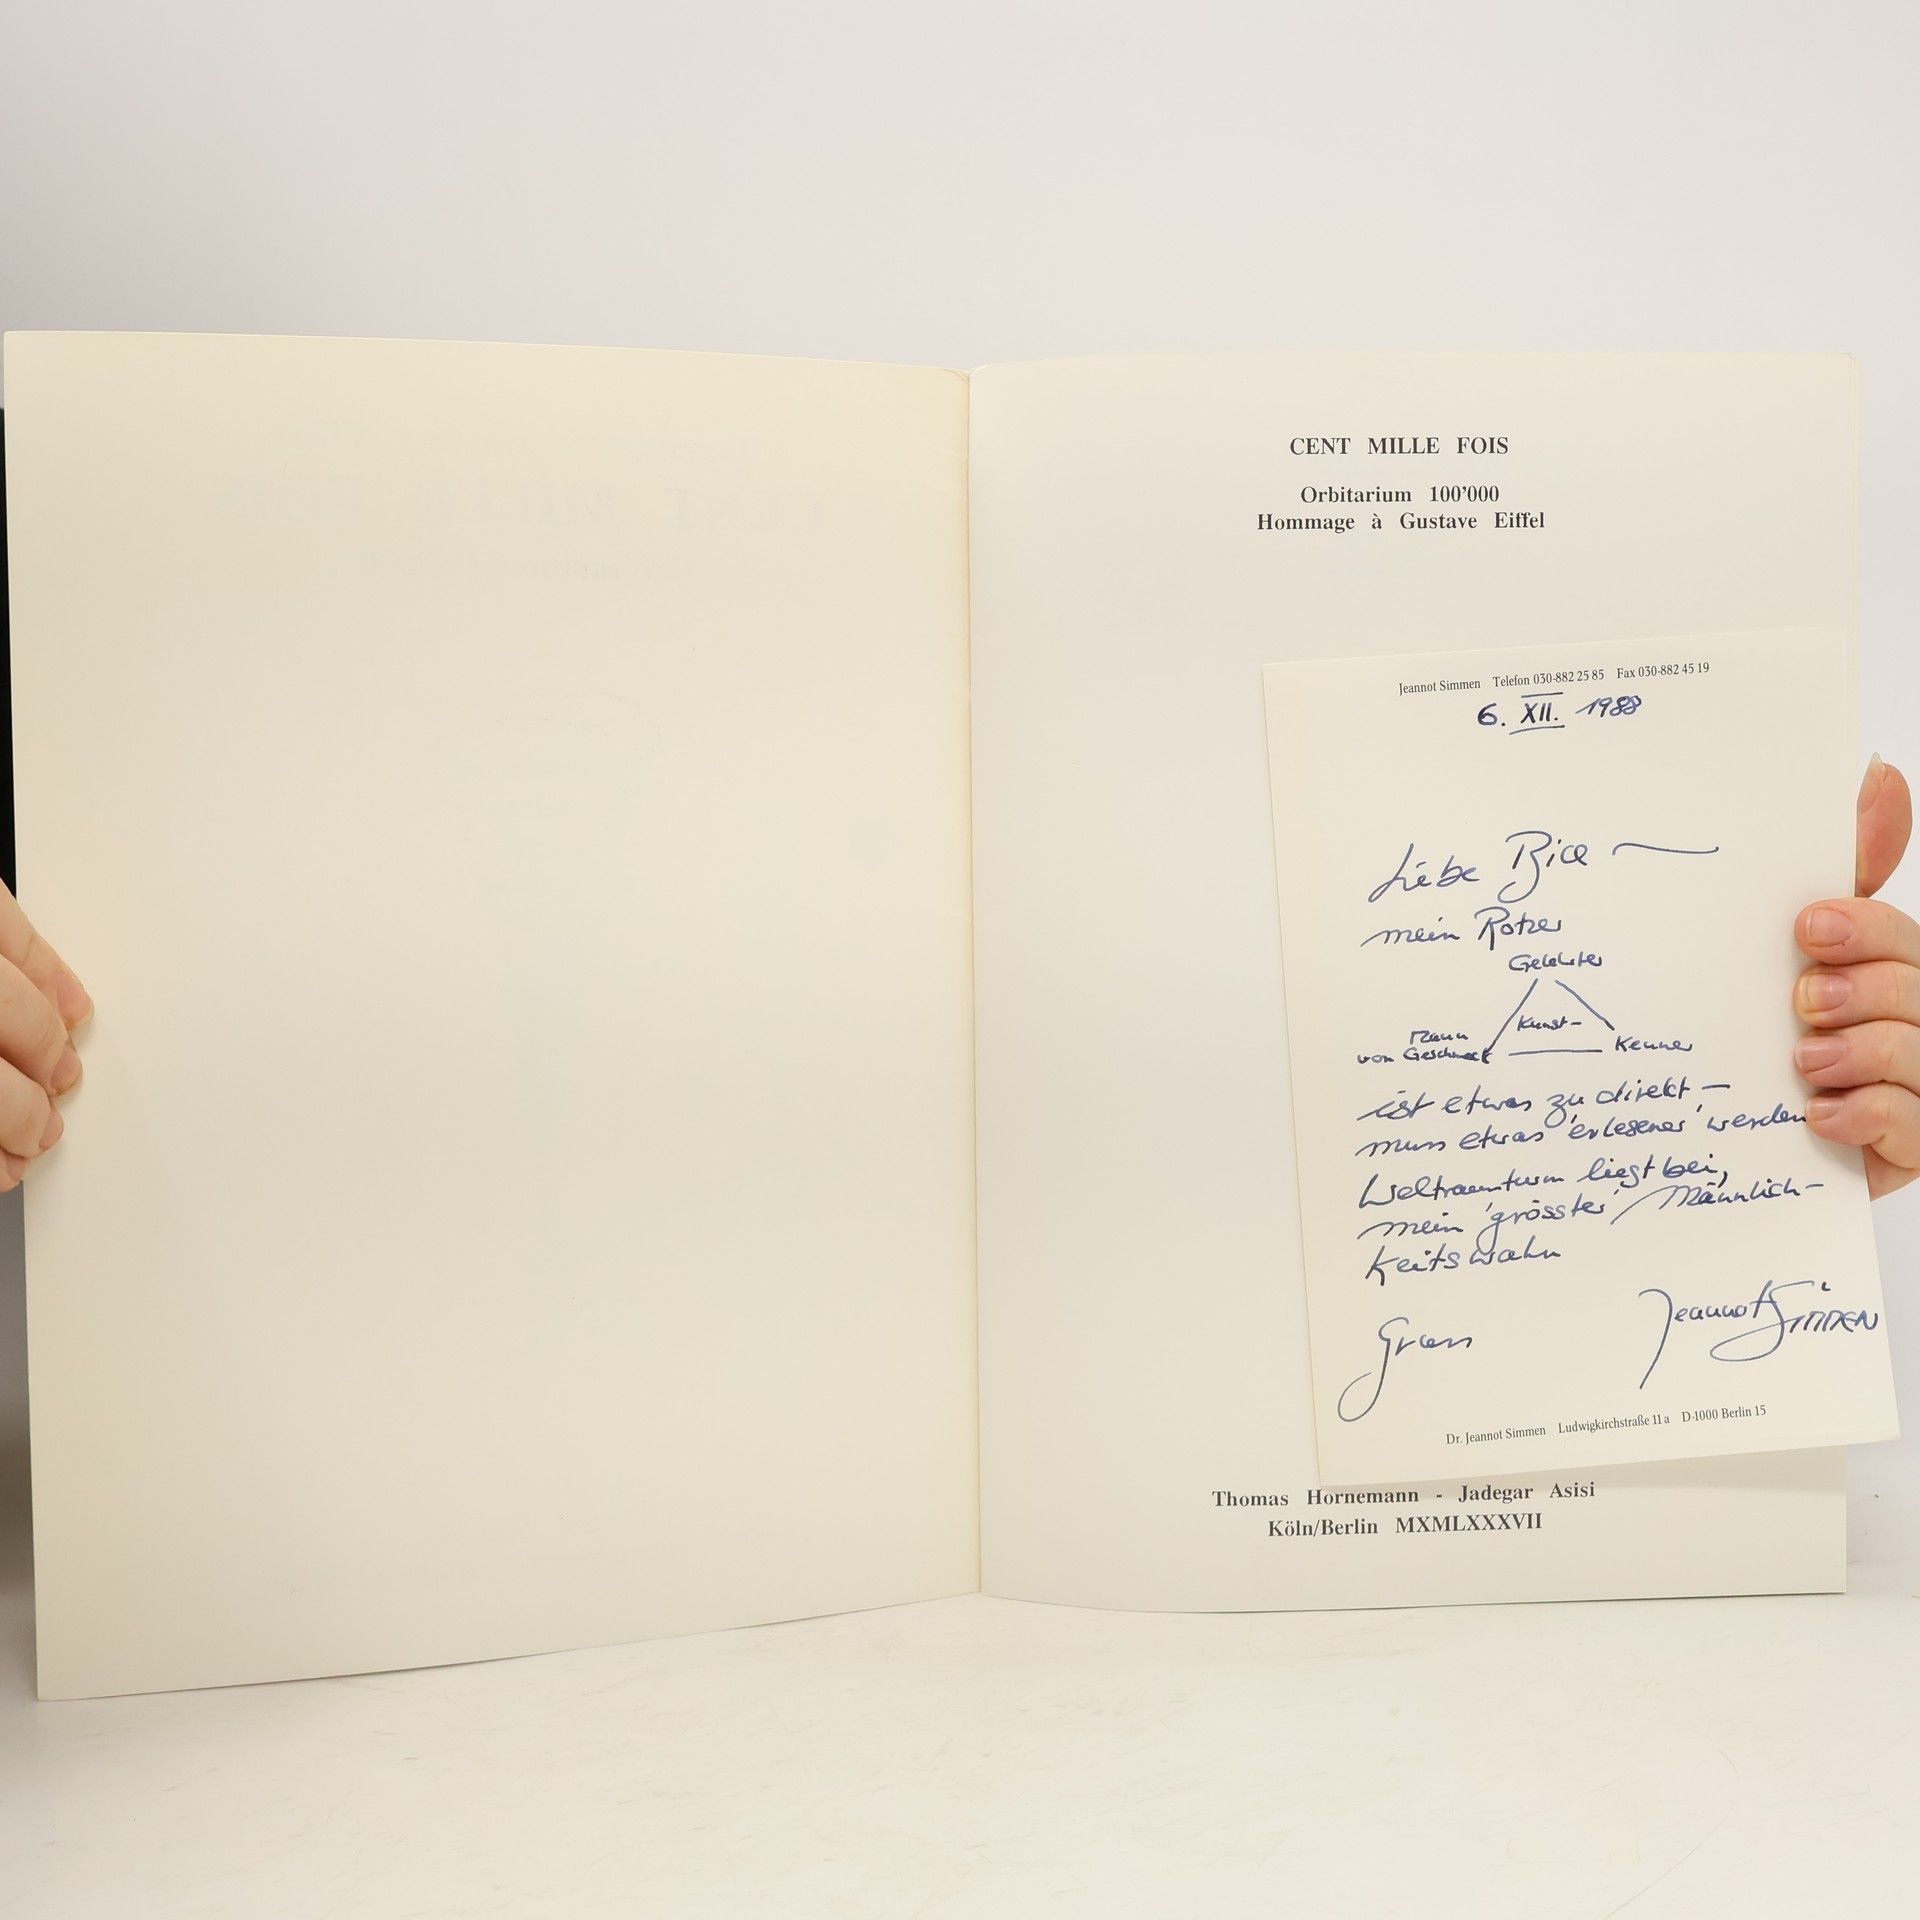 CENT MILLE FOIS
Orbitarium 100'000
Hommage à Gustave Eiffel
Jeannot Simmen Telefon 030-882 25 85 Fax 030-882 45 19
6. XII. 1988
Liebe Bice
mein Rotzer
Gelehrter
Kunst-
Mann
von Geschmack
Kenner
ist etwas zu direkt –
muss etwas 'erlesener' werden
Weltraumturm liegt bei,
mein 'grösster' Männlich-
keitswahn
Gruss
Jeannot Simmen
Dr. Jeannot Simmen Ludwigkirchstraße 11 a D-1000 Berlin 15
Thomas Hornemann - Jadegar Asisi
Köln/Berlin MXMLXXXVII